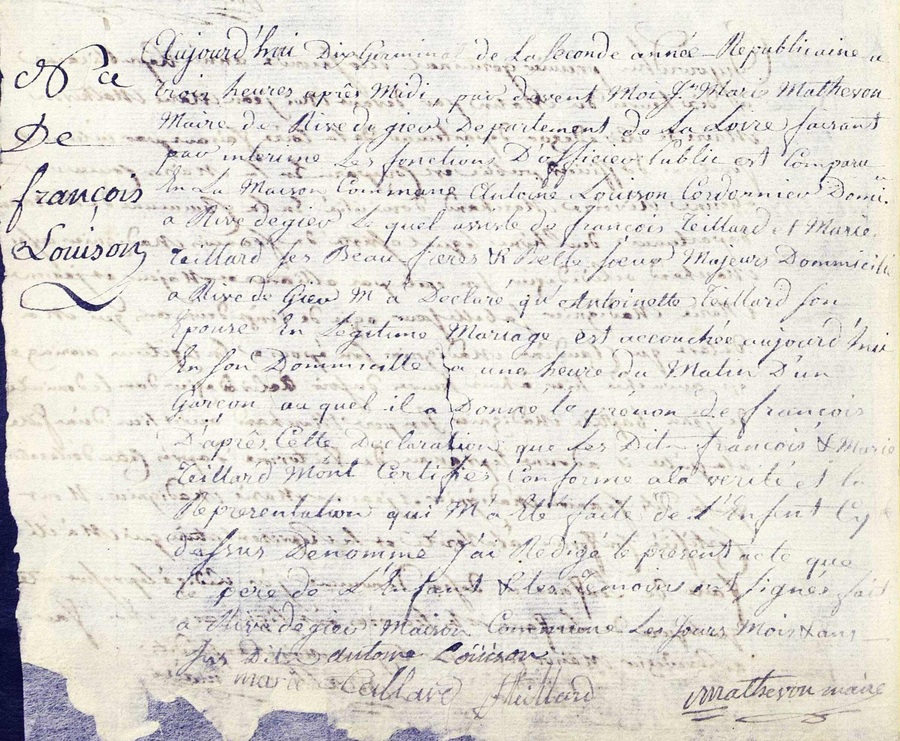 Nce
De
françois
Louison
Aujourd'hui Dix Germinal de La seconde année Republicaine a
trois heures après Midi par devent Moi Jn Marie Mathevon
Maire de Rivedegier Departement de La Loire faisant
par interime Les fonctions D'officier Public est Comparu
En La Maison Commune Antoine Louison Cordonnier Domi.
a Rivedegier Le quel assiste de françois Teillard et Marie
Teillard ses Beau freres & Belle soeur Majeurs Dommicili
a Rive de Gier M'a Declaré qu'Antoinette Teillard son
Epouse En Légitime Mariage est accouchée aujourd'hui
En son Dommicille a une heure du Matin D'un
Garçon auquel il a Donné le prénon de françois
D'après Cette Declaration que Les Dit françois & Marie
Teillard M'ont Certifiés Conforme a la verité et la
Representation qui M'a Eté faite de L'Enfent Cy
dessus Denommé J'ai Redigé le présent acte que
Le pere de L'Enfant & les temoins ont signés fait
a Rivedegier Maison Commune Les Jours Mois & ans
Dit antoine Louison
marie teillard fteillard Mathevon maire